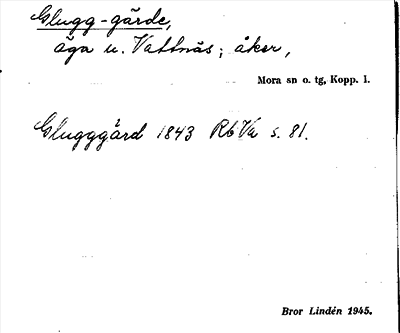 Glugg-gärde,
äga u. Vattnäs; åker,
Mora sn o. tg, Kopp. l.
Glugggärd 1843 RbVa s. 81.
Bror Lindén 1945.